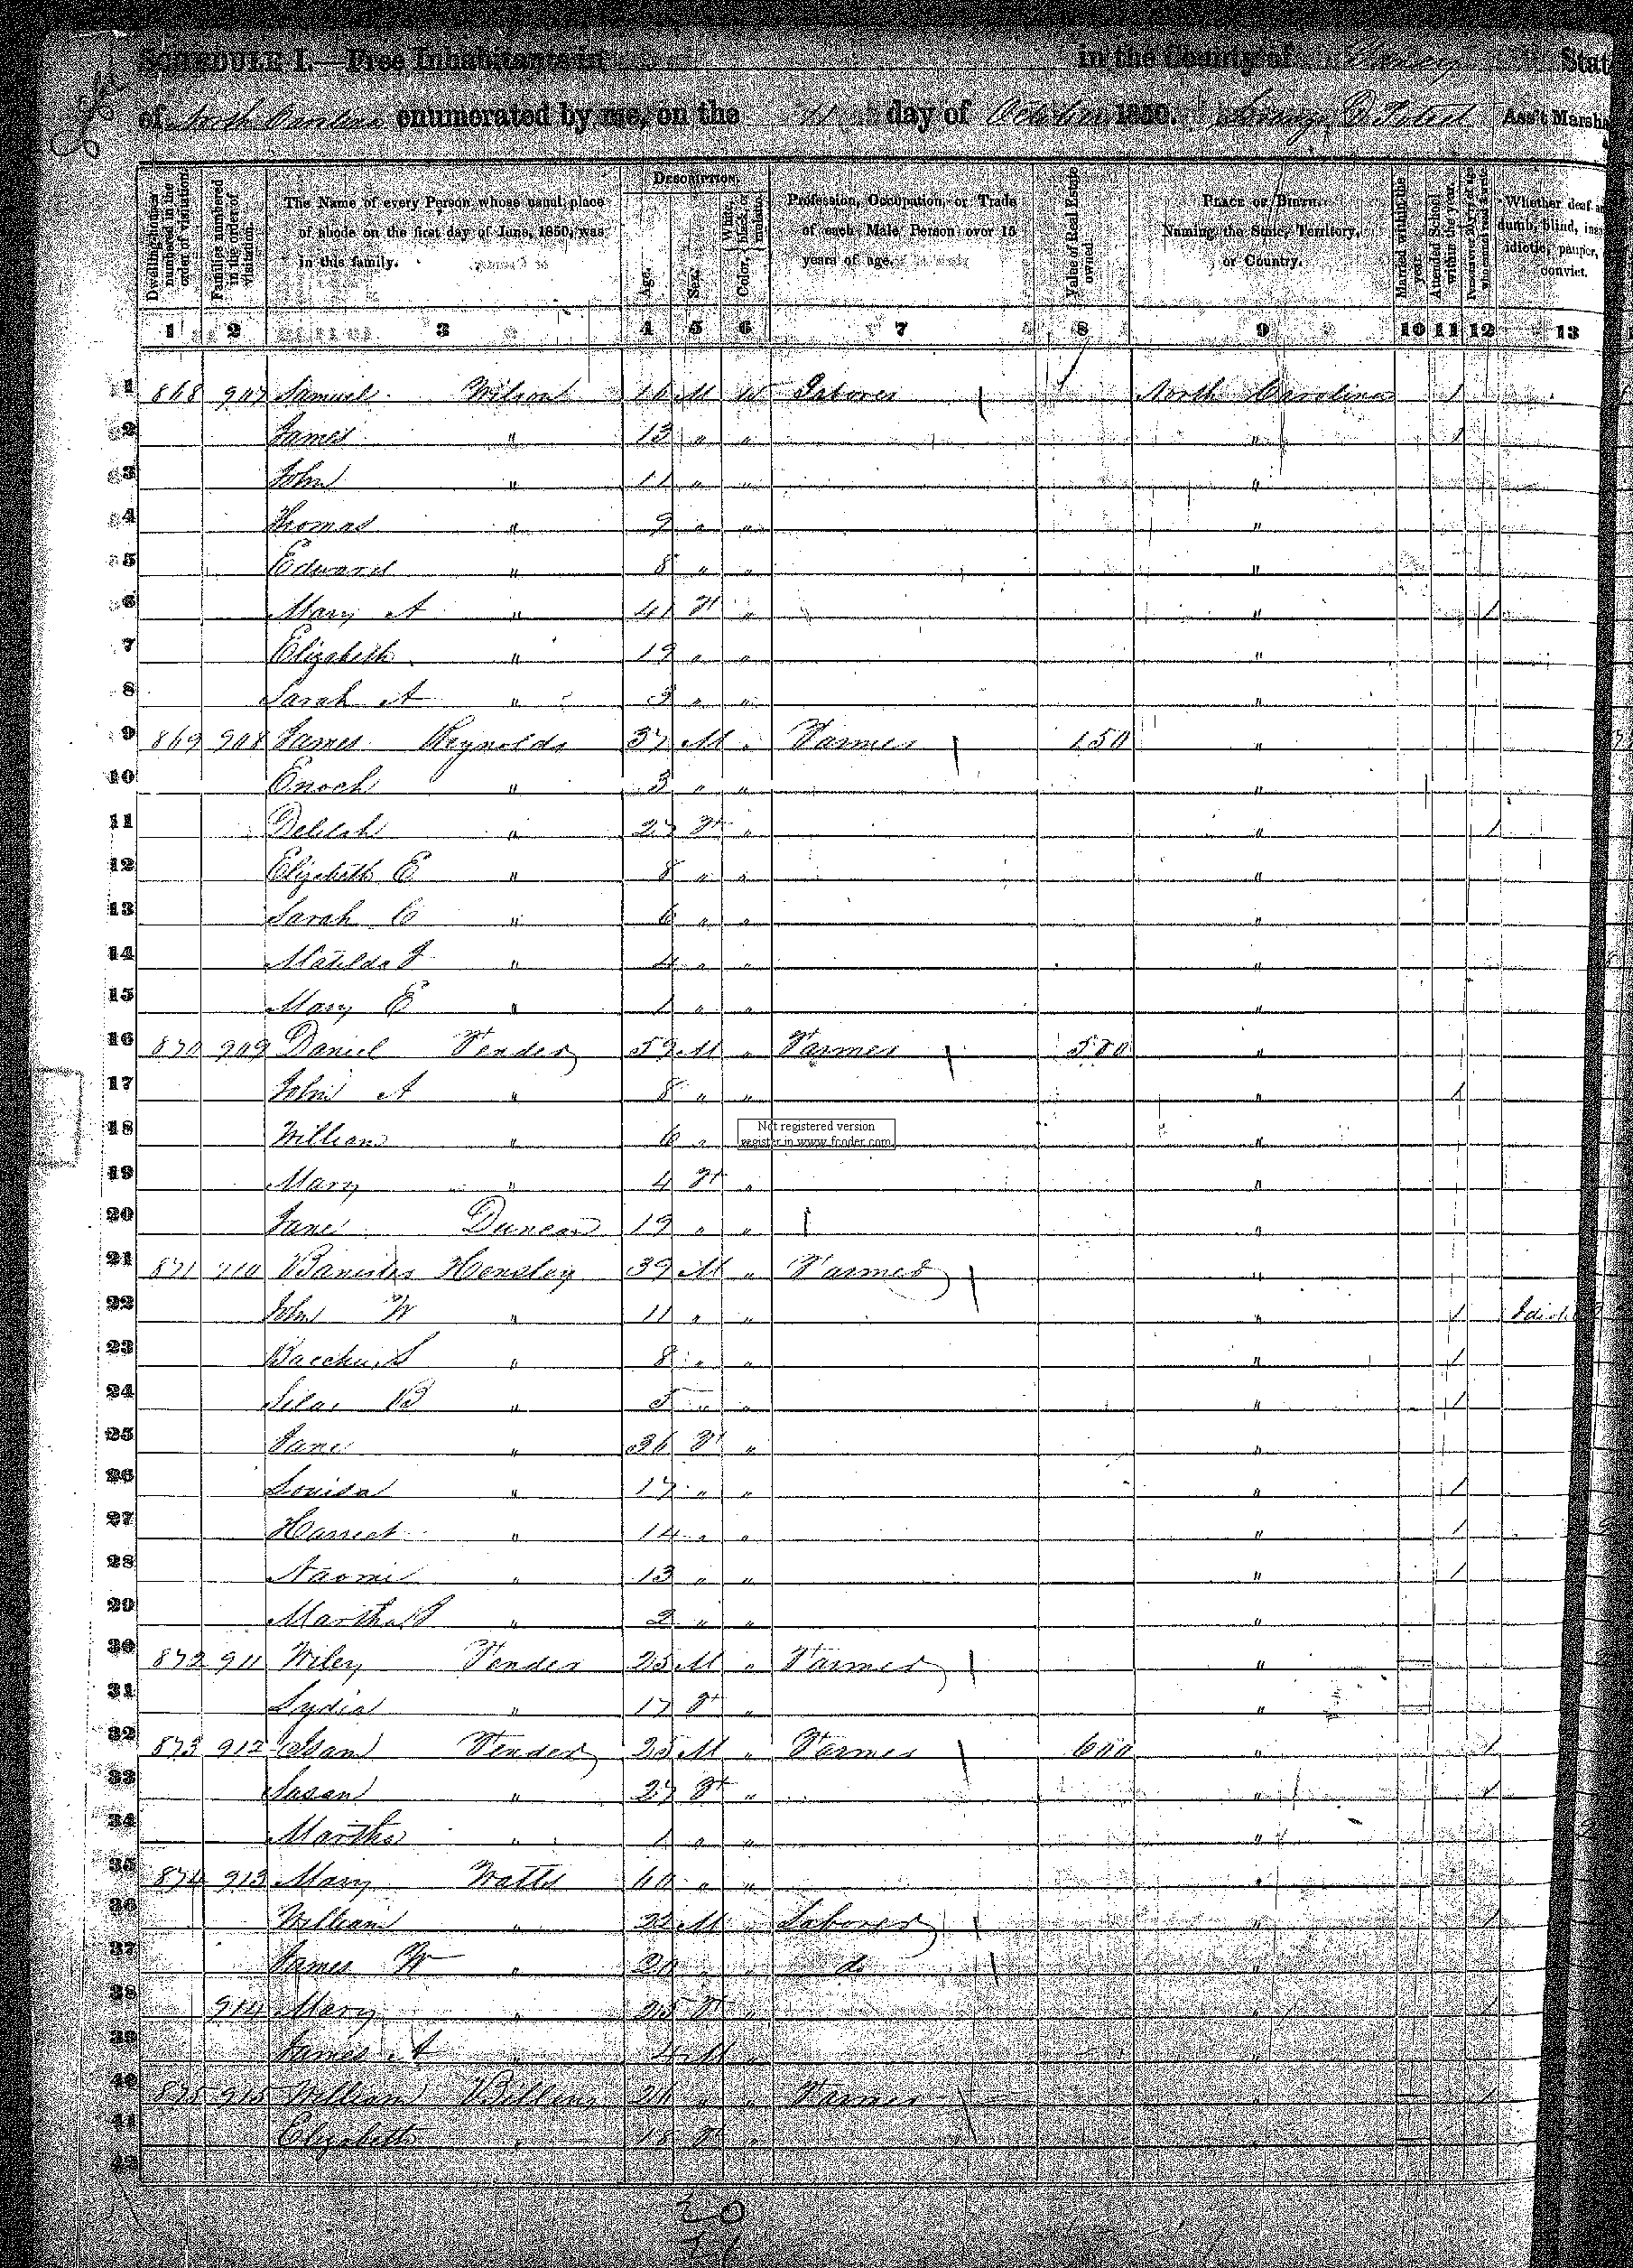 SCHEDULE I.—Free Inhabitants in in the County of Yancey State
of North Carolina enumerated by me, on the 11 day of October 1850. Ass't Marshal
Dwelling-houses numbered in the order of visitation.
Families numbered in the order of visitation.
The Name of every Person whose usual place of abode on the first day of June, 1850, was in this family.
DESCRIPTION.
Age.
Sex.
Color, White, black, or mulatto.
Profession, Occupation, or Trade of each Male Person over 15 years of age.
Value of Real Estate owned.
PLACE OF BIRTH. Naming the State, Territory, or Country.
Married within the year.
Attended School within the year.
Persons over 20 y'rs of age who cannot read & write.
Whether deaf and dumb, blind, insane, idiotic, pauper, convict.
1 2 3 4 5 6 7 8 9 10 11 12 13
1 868 907 Samuel Wilson 16 M W Laborer North Carolina 1
2 James " 13 " " " 1
3 John " 11 " " "
4 Thomas " 9 " " "
5 Edward " 8 " " "
6 Mary A " 41 F " " 1
7 Elizabeth " 19 " " "
8 Sarah A " 3 " " "
9 869 908 James Reynolds 37 M " Farmer 150 "
10 Enoch " 3 " " "
11 Delilah " 27 F " " 1
12 Elizabeth E " 8 " " "
13 Sarah C " 6 " " "
14 Matilda J " 4 " " "
15 Mary E " 1 " " "
16 870 909 Daniel Fender 59 M " Farmer 500 "
17 John A " 8 " " " 1
18 William " 6 " "
Not registered version
register in www.fcoder.com
19 Mary " 4 F " "
20 Jane Duncan 19 " " "
21 871 910 Banister Hensley 39 M " Farmer "
22 John W " 11 " " " 1 Idiotic
23 Bacchus S " 8 " " " 1
24 Silas B " 5 " " " 1
25 Jane " 36 F " "
26 Louisa " 17 " " " 1
27 Harriet " 14 " " " 1
28 Naomi " 13 " " " 1
29 Martha J " 2 " " "
30 872 911 Wiley Fender 25 M " Farmer "
31 Lydia " 17 F " "
32 873 912 Fender 25 M " Farmer 600 " 1
33 Susan " 27 F " " 1
34 Martha " 1 " " "
35 874 913 Mary Watts 60 " " "
36 William " 22 M " Laborer " 1
37 James W " 20 " " do "
38 914 Mary " 25 F " " 1
39 James A " 4 M " "
40 875 915 William Billens 20 " " Farmer " 1
41 Elizabeth " 18 F " "
42
20